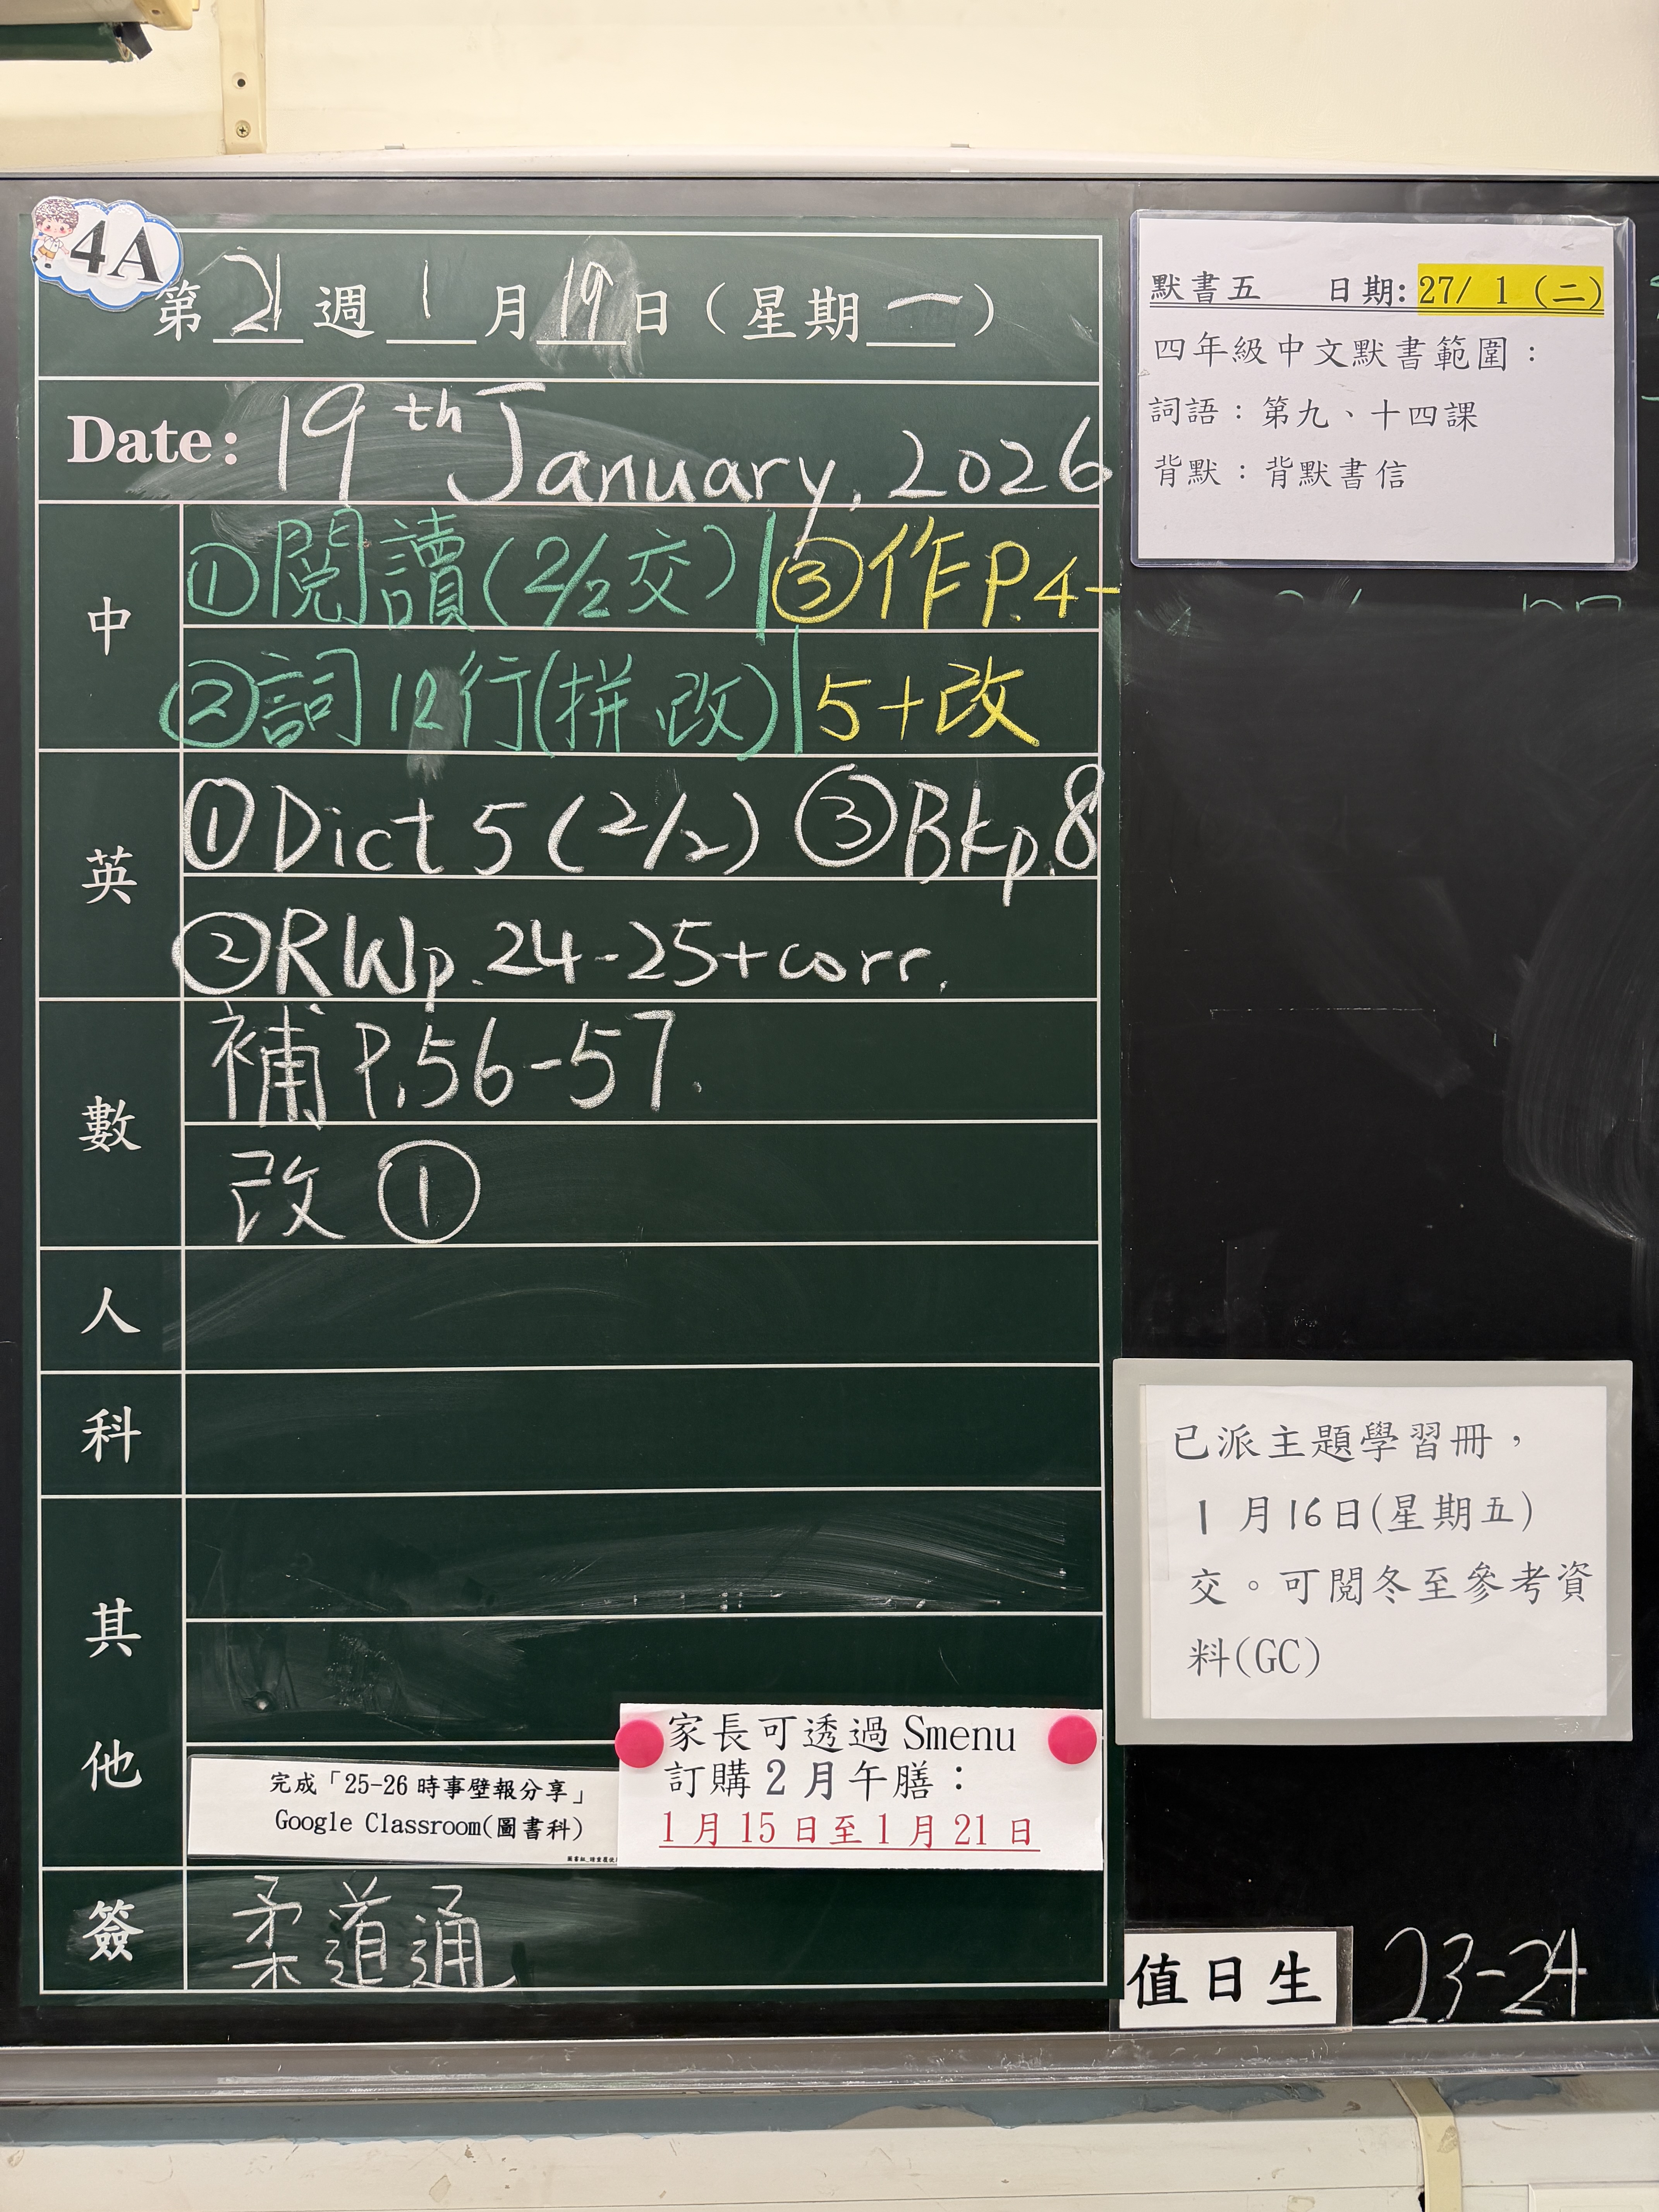 4A
第 21 週 1 月 19 日（星期 一 ）
Date: 19th January, 2026
中
①閱讀(2/2交) ③作P.4-
②詞12行(拼 改) 5+改
英
①Dict 5 (2/2) ③Bkp.8
②RWp.24-25+corr.
數
補 P.56-57.
改 ①
人
科
其他
完成「25-26 時事壁報分享」
Google Classroom(圖書科)
家長可透過 Smenu
訂購 2 月午膳：
1 月 15 日至 1 月 21 日
簽
柔道通
默書五 日期: 27/ 1 (二)
四年級中文默書範圍：
詞語：第九、十四課
背默：背默書信
已派主題學習冊，
1 月16日(星期五)
交。可閱冬至參考資
料(GC)
值日生 23-24